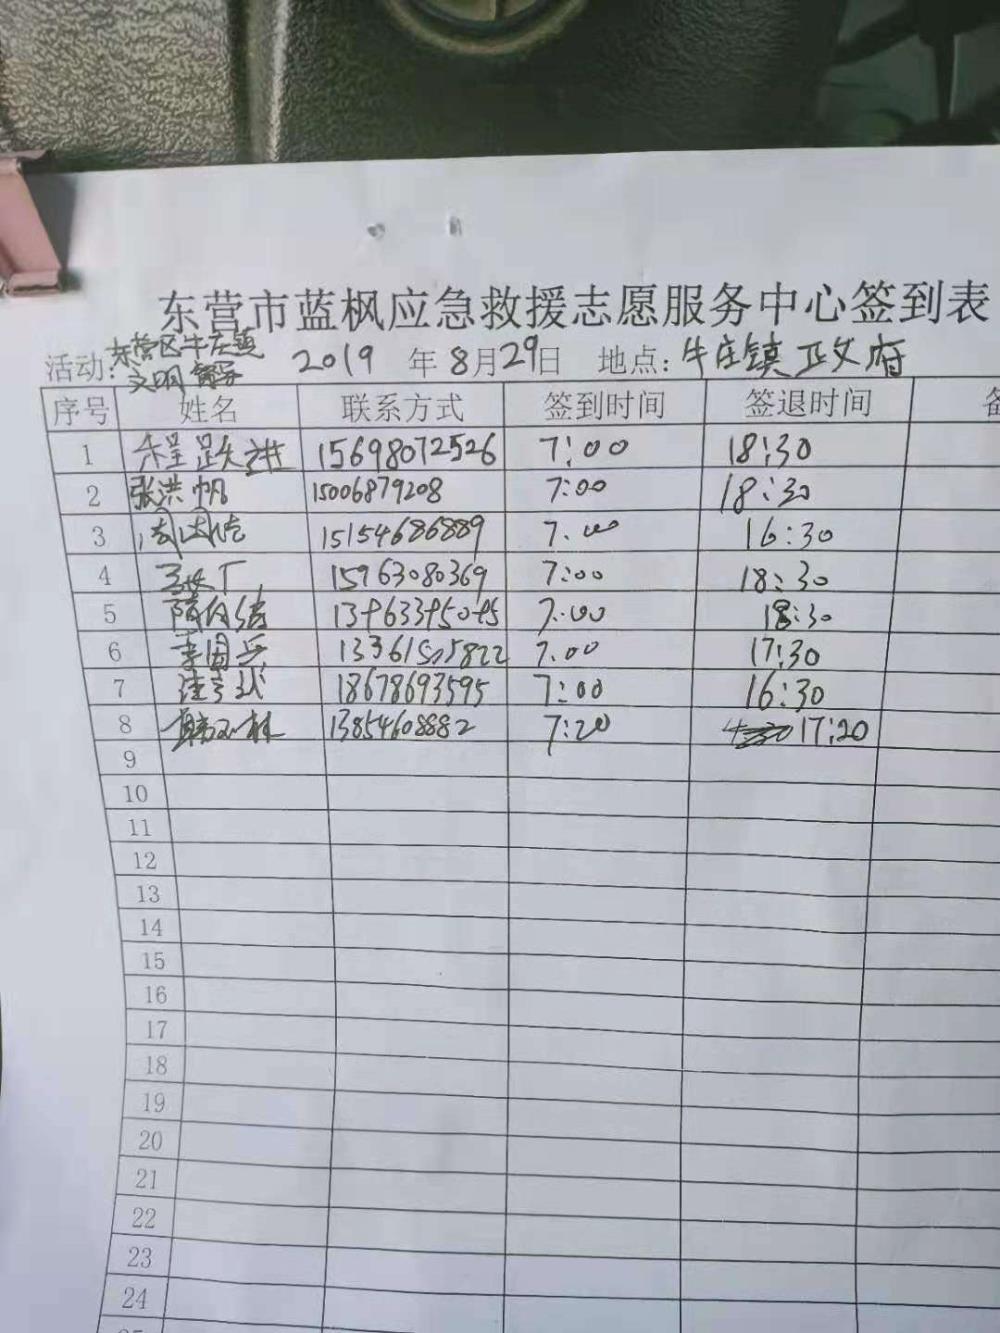 东营市蓝枫应急救援志愿服务中心签到表
活动:东营区牛庄镇文明 2019年8月29日 地点:牛庄镇政府
序号 姓名 联系方式 签到时间 签退时间
1 程跃进 15698072526 7:00 18:30
2 张洪帆 15006879208 7:00 18:30
3 15154686889 7:00 16:30
4 15963080369 7:00 18:30
5 7:00 18:30
6 李国兵 7:00 17:30
7 18678693595 7:00 16:30
8 13854608882 7:20 17:20
9
10
11
12
13
14
15
16
17
18
19
20
21
22
23
24